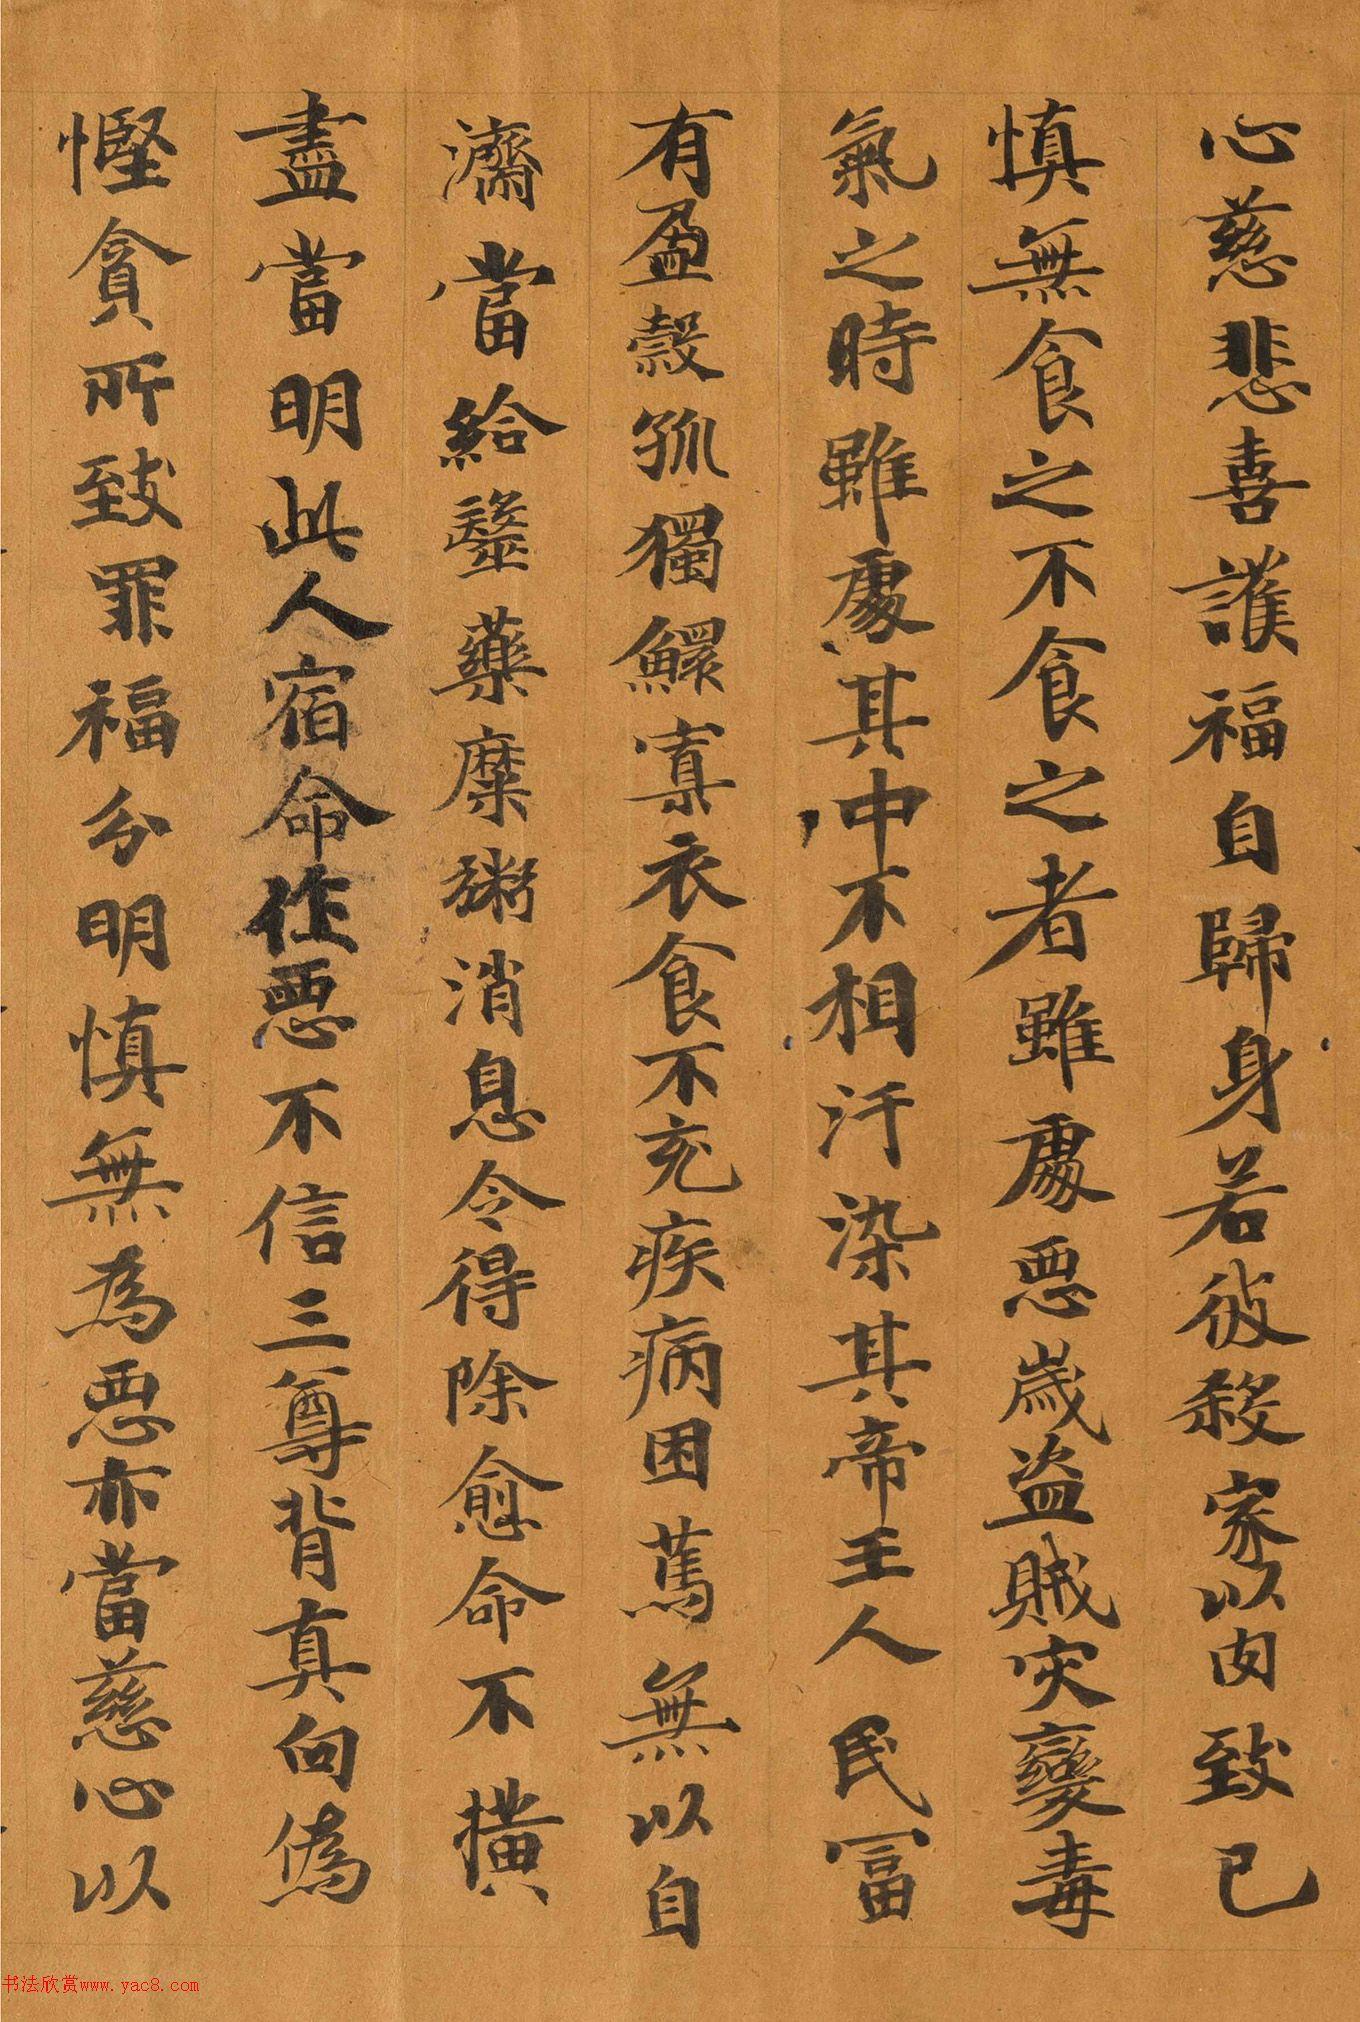 心慈悲喜護福自歸身若彼殺家以肉致已
慎無食之不食之者雖處惡歲盜賊灾變毒
氣之時雖處其中不相汙染其帝王人民富
有盈穀孤獨鰥寡衣食不充疾病困篤無以自
濟當給毉藥糜粥消息令得除愈命不撗
盡當明此人宿命作惡不信三尊背真向偽
慳貪所致罪福分明慎無為惡亦當慈心以
书法欣赏www.yac8.com